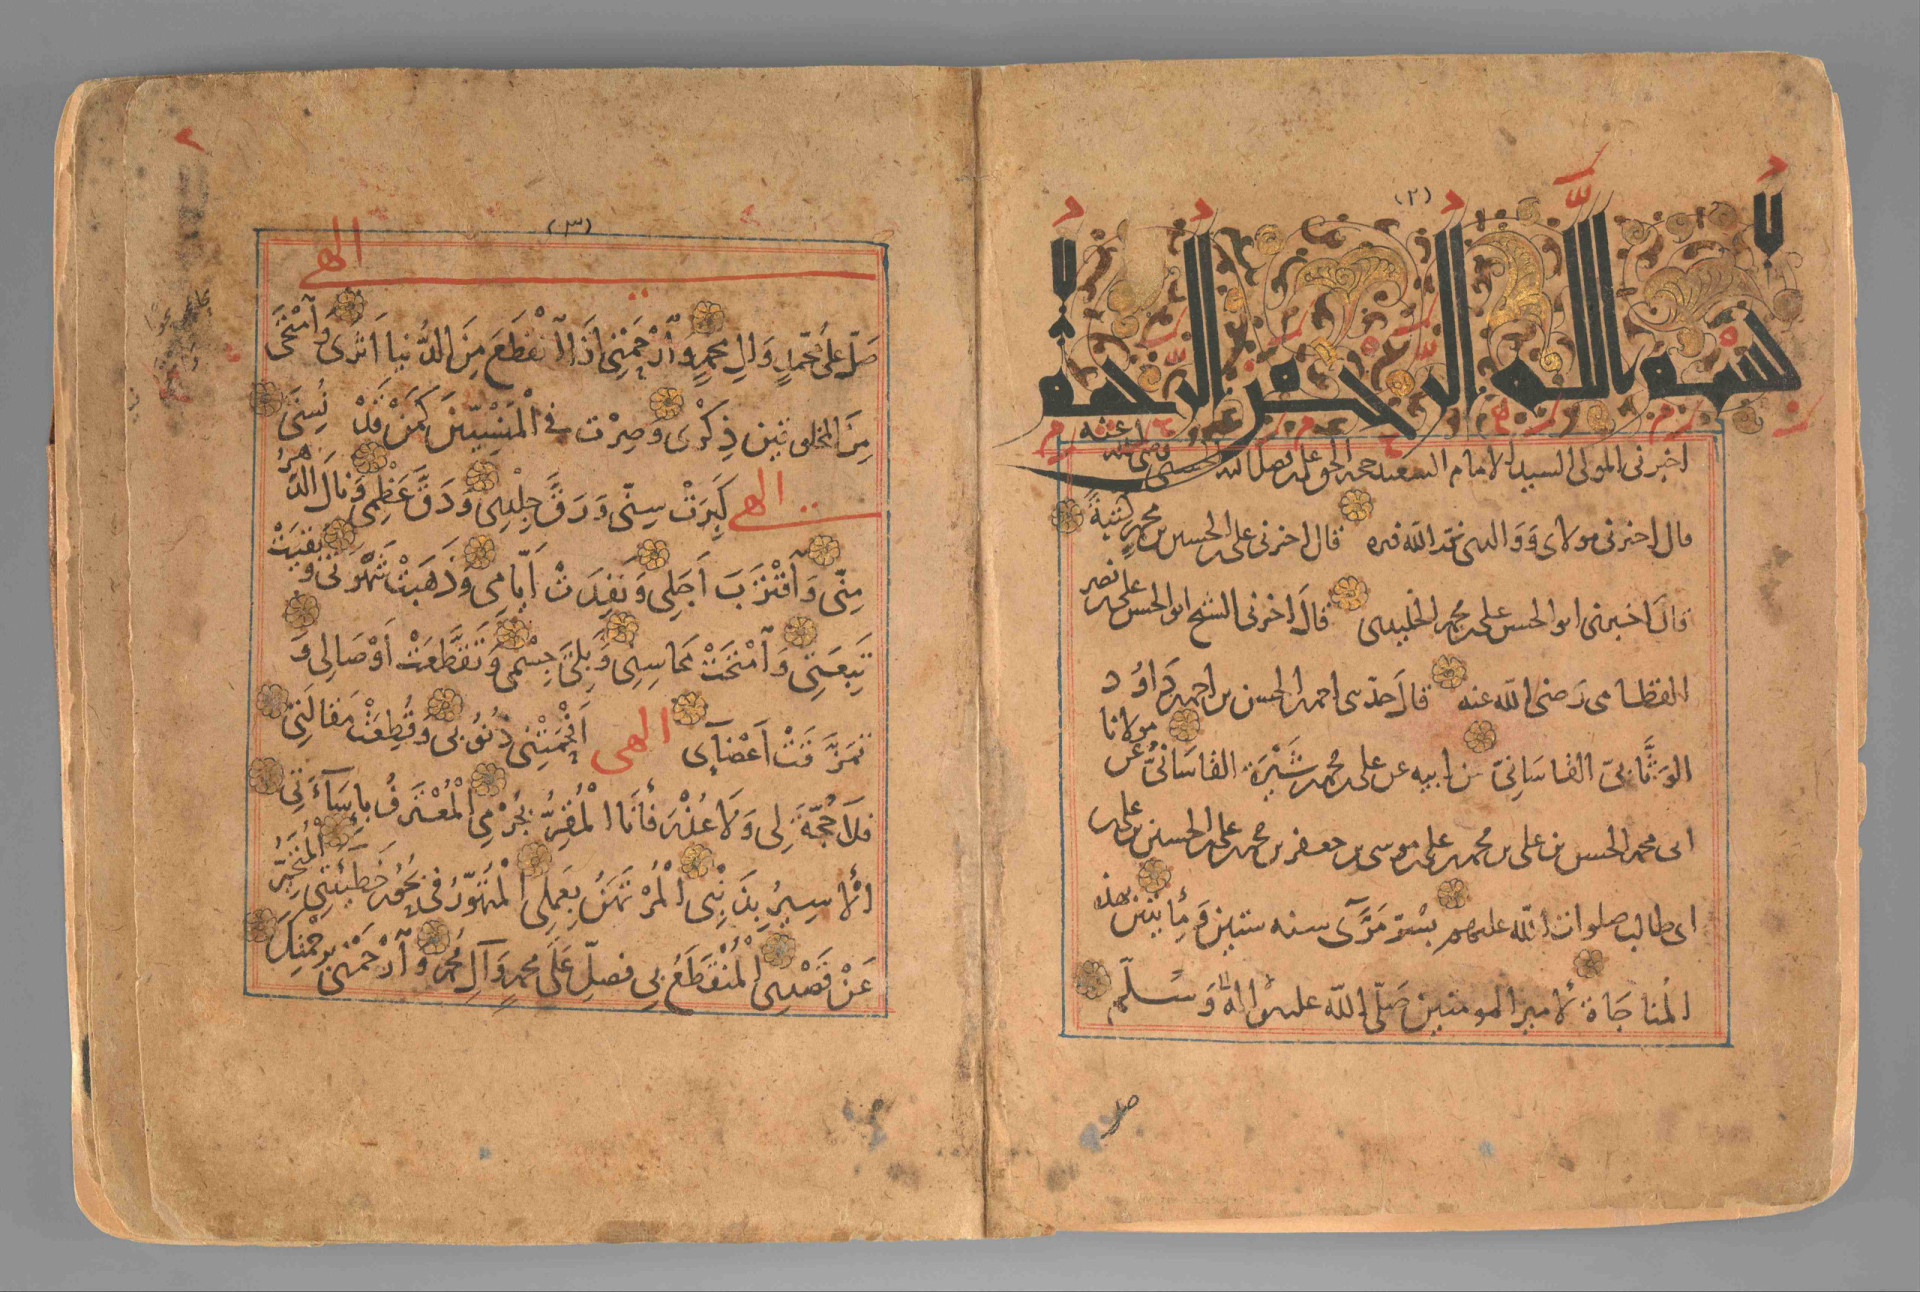 (٢)
بسم الله الرحمن الرحيم
اخبرنى المولى السيد الامام السعيد حجة الحق على بن فضل الله الحسنى رضى الله عنه
قال اخبرنى مولاى و والدى تغمد الله قبره قال اخبرنى على بن الحسين بن محمد كتيبةً
قال اخبرنى ابو الحسن على بن محمد الخليدى قال اخبرنى الشيخ ابو الحسن على بن نصر
القطامى رضى الله عنه قال حدثنى احمد بن الحسن بن احمد بن داود
الوَثَّابىّ القاسانىّ عن ابيه عن على بن محمد بن شَيْرَة القاسانىّ عن مولانا
ابى محمد الحسن بن على بن محمد بن على بن موسى بن جعفر بن محمد بن على بن الحسين بن على بن
ابى طالب صلوات الله عليهم بسُرّ مَرَّآى سنه ستين وَ مِأتين بهذه
المُناجَاة لامير المومنين صَلّى الله عليه و اله وَ سَلَّم
(٣)
الهى
صَلِّ عَلى مُحَمَّدٍ وَ الِ مُحمدٍ وَ ٱرْحَمْنِى اذَا ٱنْقَطَعَ مِنَ الدُّنيا اَثَرى وَ ٱمْتَحَى
مِنَ المَخلوقين ذِكْرِى وَ صِرْت فى الْمَنْسِيّينَ كَمَنْ قَدْ نُسِىَ
الهى كَبِرَتْ سِنّى وَ رَقَّ جِلْدِى وَ دَقَّ عَظْمِى وَ نَالَ الدَّهْرُ
مِنّى وَ ٱقْتَرَبَ اَجَلِى وَ نَفِدَتْ اَيّامِى وَ ذَهَبَتْ شَهْوَتِى وَ بَقِيَتْ
تَبِعَتِى وَ ٱمْتَحَتْ مَحَاسِنِى وَ بَلِىَ جِسْمِى وَ تَقَطَّعَتْ اَوْصَالِى وَ
تَمَزَّقَتْ اَعْضَآى الهى اَفْحَمَتْنِى ذُنُوبى وَ قُطِعَتْ مَقالَتِى
فَلَا حُجَّةَ لِى وَ لَا عُذْرَ فَأنَا الْمُقِرُّ بِجُرْمِى الْمُعْتَرِفُ بِاِسَآءَتِى
اَلْاَسِيرُ بِذَنْبِى الْمُرْتَهَنُ بِعَمَلِى الْمُتَهَوِّرُ فى بُحُورِ خَطِيئَتِى الْمُتَحَيِّرُ
عَنْ قَصْدِى الْمُنْقَطَعُ بِى فصلِّ عَلَى محمدٍ وَ آلِ مُحمدٍ وَ ٱرْحَمْنِى بِرَحْمَتِكَ